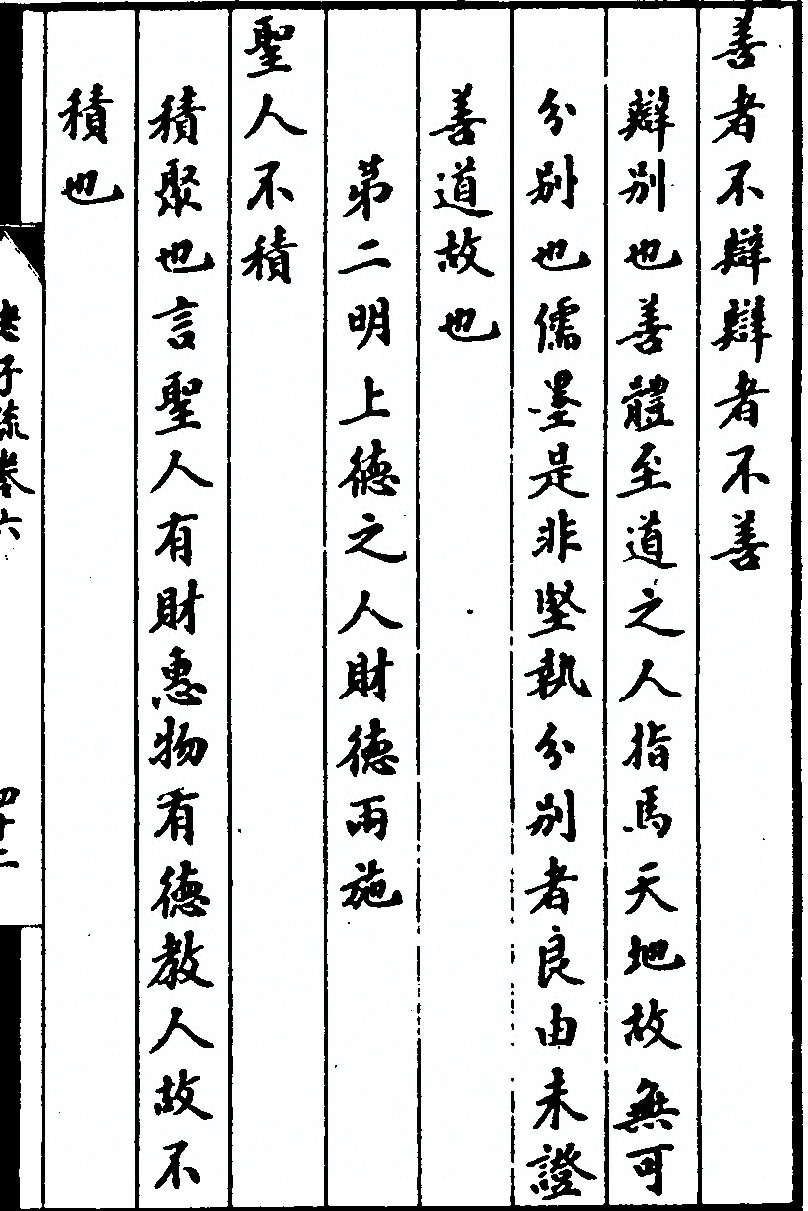 善者不辯辯者不善
辯別也善體至道之人指馬天地故無可
分別也儒墨是非堅執分別者良由未證
善道故也
第二明上德之人財德兩施
聖人不積
積聚也言聖人有財惠物有德教人故不
積也
老子疏卷六
四十二